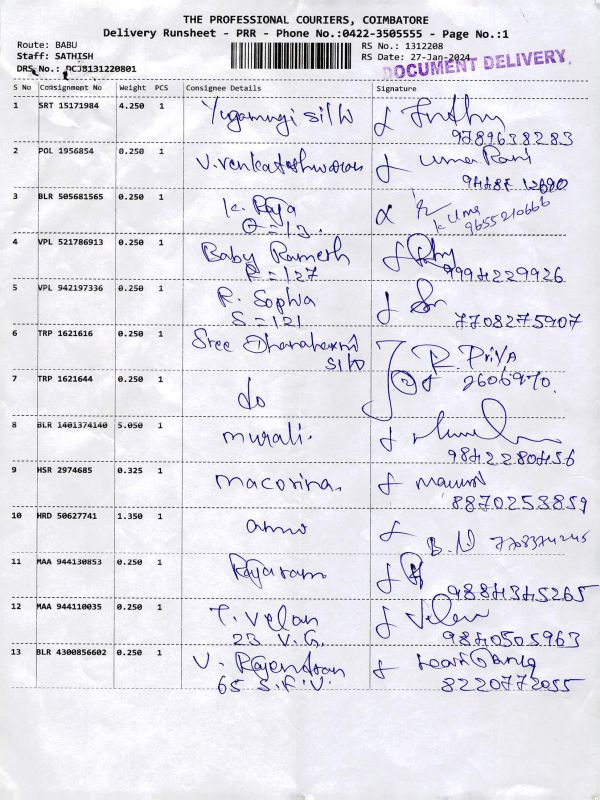 THE PROFESSIONAL COURIERS, COIMBATORE
Delivery Runsheet - PRR - Phone No.:0422-3505555 - Page No.:1
Route: BABU RS No.: 1312208
Staff: SATHISH RS Date: 27-Jan-2024
DRS No.: DCJB131220801 DOCUMENT DELIVERY
S No Consignment No Weight PCS Consignee Details Signature
1 SRT 15171984 4.250 1
9789638283
2 POL 1956854 0.250 1 V. Venkateshwaran Uma Rani
3 BLR 505681565 0.250 1 K. Raja K Uma
9655210666
4 VPL 521786913 0.250 1 Baby Ramesh
R = 127 9994229926
5 VPL 942197336 0.250 1 R. Sophia
S = 121 7708275907
6 TRP 1621616 0.250 1 Sree R. Priya
7 TRP 1621644 0.250 1 do 2606970.
8 BLR 1401374140 5.050 1 murali.
9842280456
9 HSR 2974685 0.325 1 macorina.
8870253859
10 HRD 50627741 1.350 1
11 MAA 944130853 0.250 1 Rajaram
9884345265
12 MAA 944110035 0.250 1 T. Velan Velan
23 V.G. 9840505963
13 BLR 4300856602 0.250 1 V. Rajendran
65 S.F.V. 8220772055